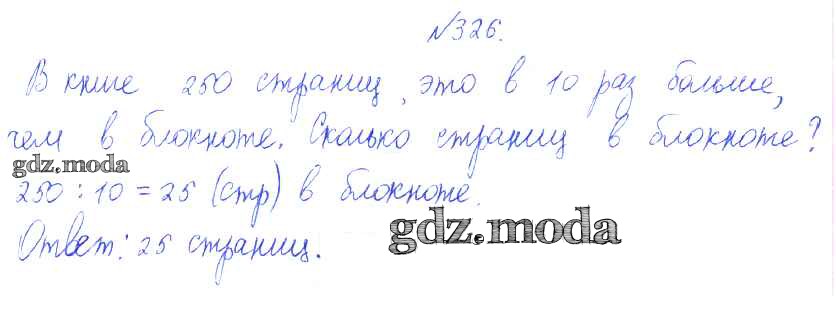 №326.
В книге 250 страниц, это в 10 раз больше,
чем в блокноте. Сколько страниц в блокноте?
gdz.moda
250 : 10 = 25 (стр) в блокноте.
Ответ: 25 страниц.
gdz.moda